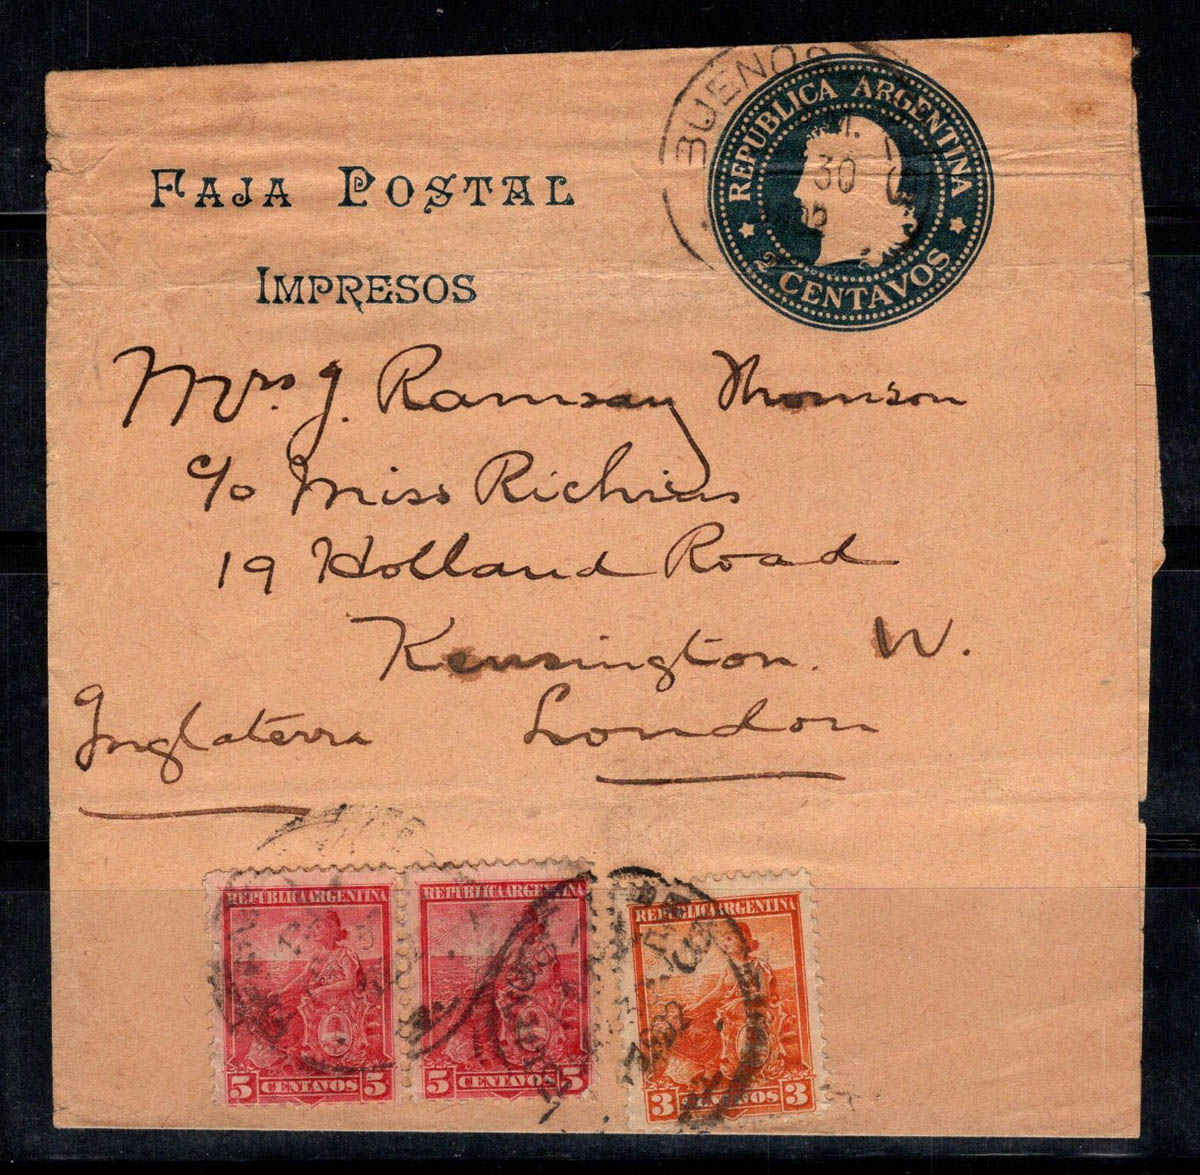 BUENOS
REPUBLICA ARGENTINA
30
2 CENTAVOS
FAJA POSTAL
IMPRESOS
Mrs. J. Ramsay Thomson
c/o Miss
19 Holland Road
Kensington. W.
Inglaterra London
REPUBLICA ARGENTINA
5 CENTAVOS 5
REPUBLICA ARGENTINA
5 CENTAVOS 5
REPUBLICA ARGENTINA
3 CENTAVOS 3